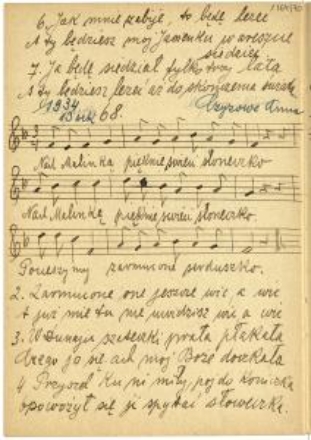 6. Jak mnie zabije, to bede lezec
A ty bedziesz mój Jasienku w areszcie
siedzieć
7. Ja bede siedział tylko trzy lata
A ty bedziesz lezec aż do skończenia świata
1934
68.
Anna
Nad Malinką pięknie świeci słoneczko
Nad Malinką pięknie świeci słoneczko.
Pocieszymy zasmucone serduszko.
2. Zasmucone one jeszcze wic a wic
A już mie tu nie uwidzisz wic a wic
3. W Dunaju szateczki prała płakała
Czego jo sie ach mój Boże doczkała
4. Przyszed ku ni miły, pojąc konicka
opowożył sie ji spytać słowecka.